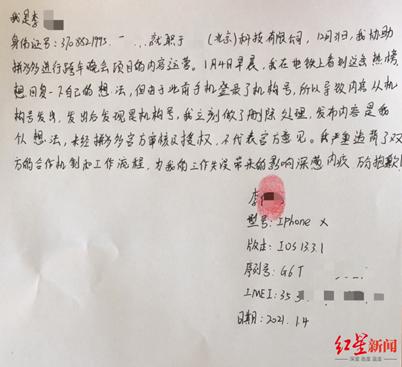 我是李
身份证号：370852199 就职于 （北京）科技有限公司，12月31日，我协助
拼多多进行跨年晚会项目的内容运营。1月4日早晨，我在地铁上看到这条热榜
想回复一下自己的想法，但由于此前手机登录了机构号，所以导致内容从机
构号发出，发出后发现是机构号，我立刻做了删除处理，发布内容是我
想法，未经拼多多官方审核及授权，不代表官方意见。我严重违背了双
方的合作机制和工作流程，为我的工作失误带来的影响深感内疚，
李
型号：IPhone X
版本：IOS 13.3.1
序列号：G6T
IMEI：35
日期：2021.1.4
红星新闻
深度 态度 温度